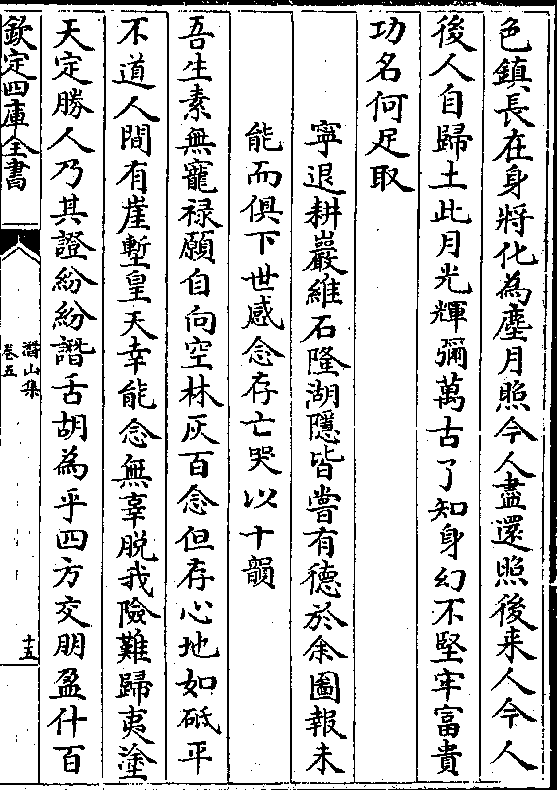 色鎮長在身將化為塵月照今人盡還照後来人今人
後人自歸土此月光輝彌萬古了知身幻不堅牢富貴
功名何足取
寧退耕巖維石隆湖隱皆嘗有德於余圖報未
能而俱下世感念存亡哭以十韻
吾生素無寵禄願自向空林灰百念但存心地如砥平
不道人間有崖塹皇天幸能念無辜脱我險難歸夷塗
天定勝人乃其證紛紛譖舌胡為乎四方交朋盈什百
欽定四庫全書
潛山集
卷五
十五